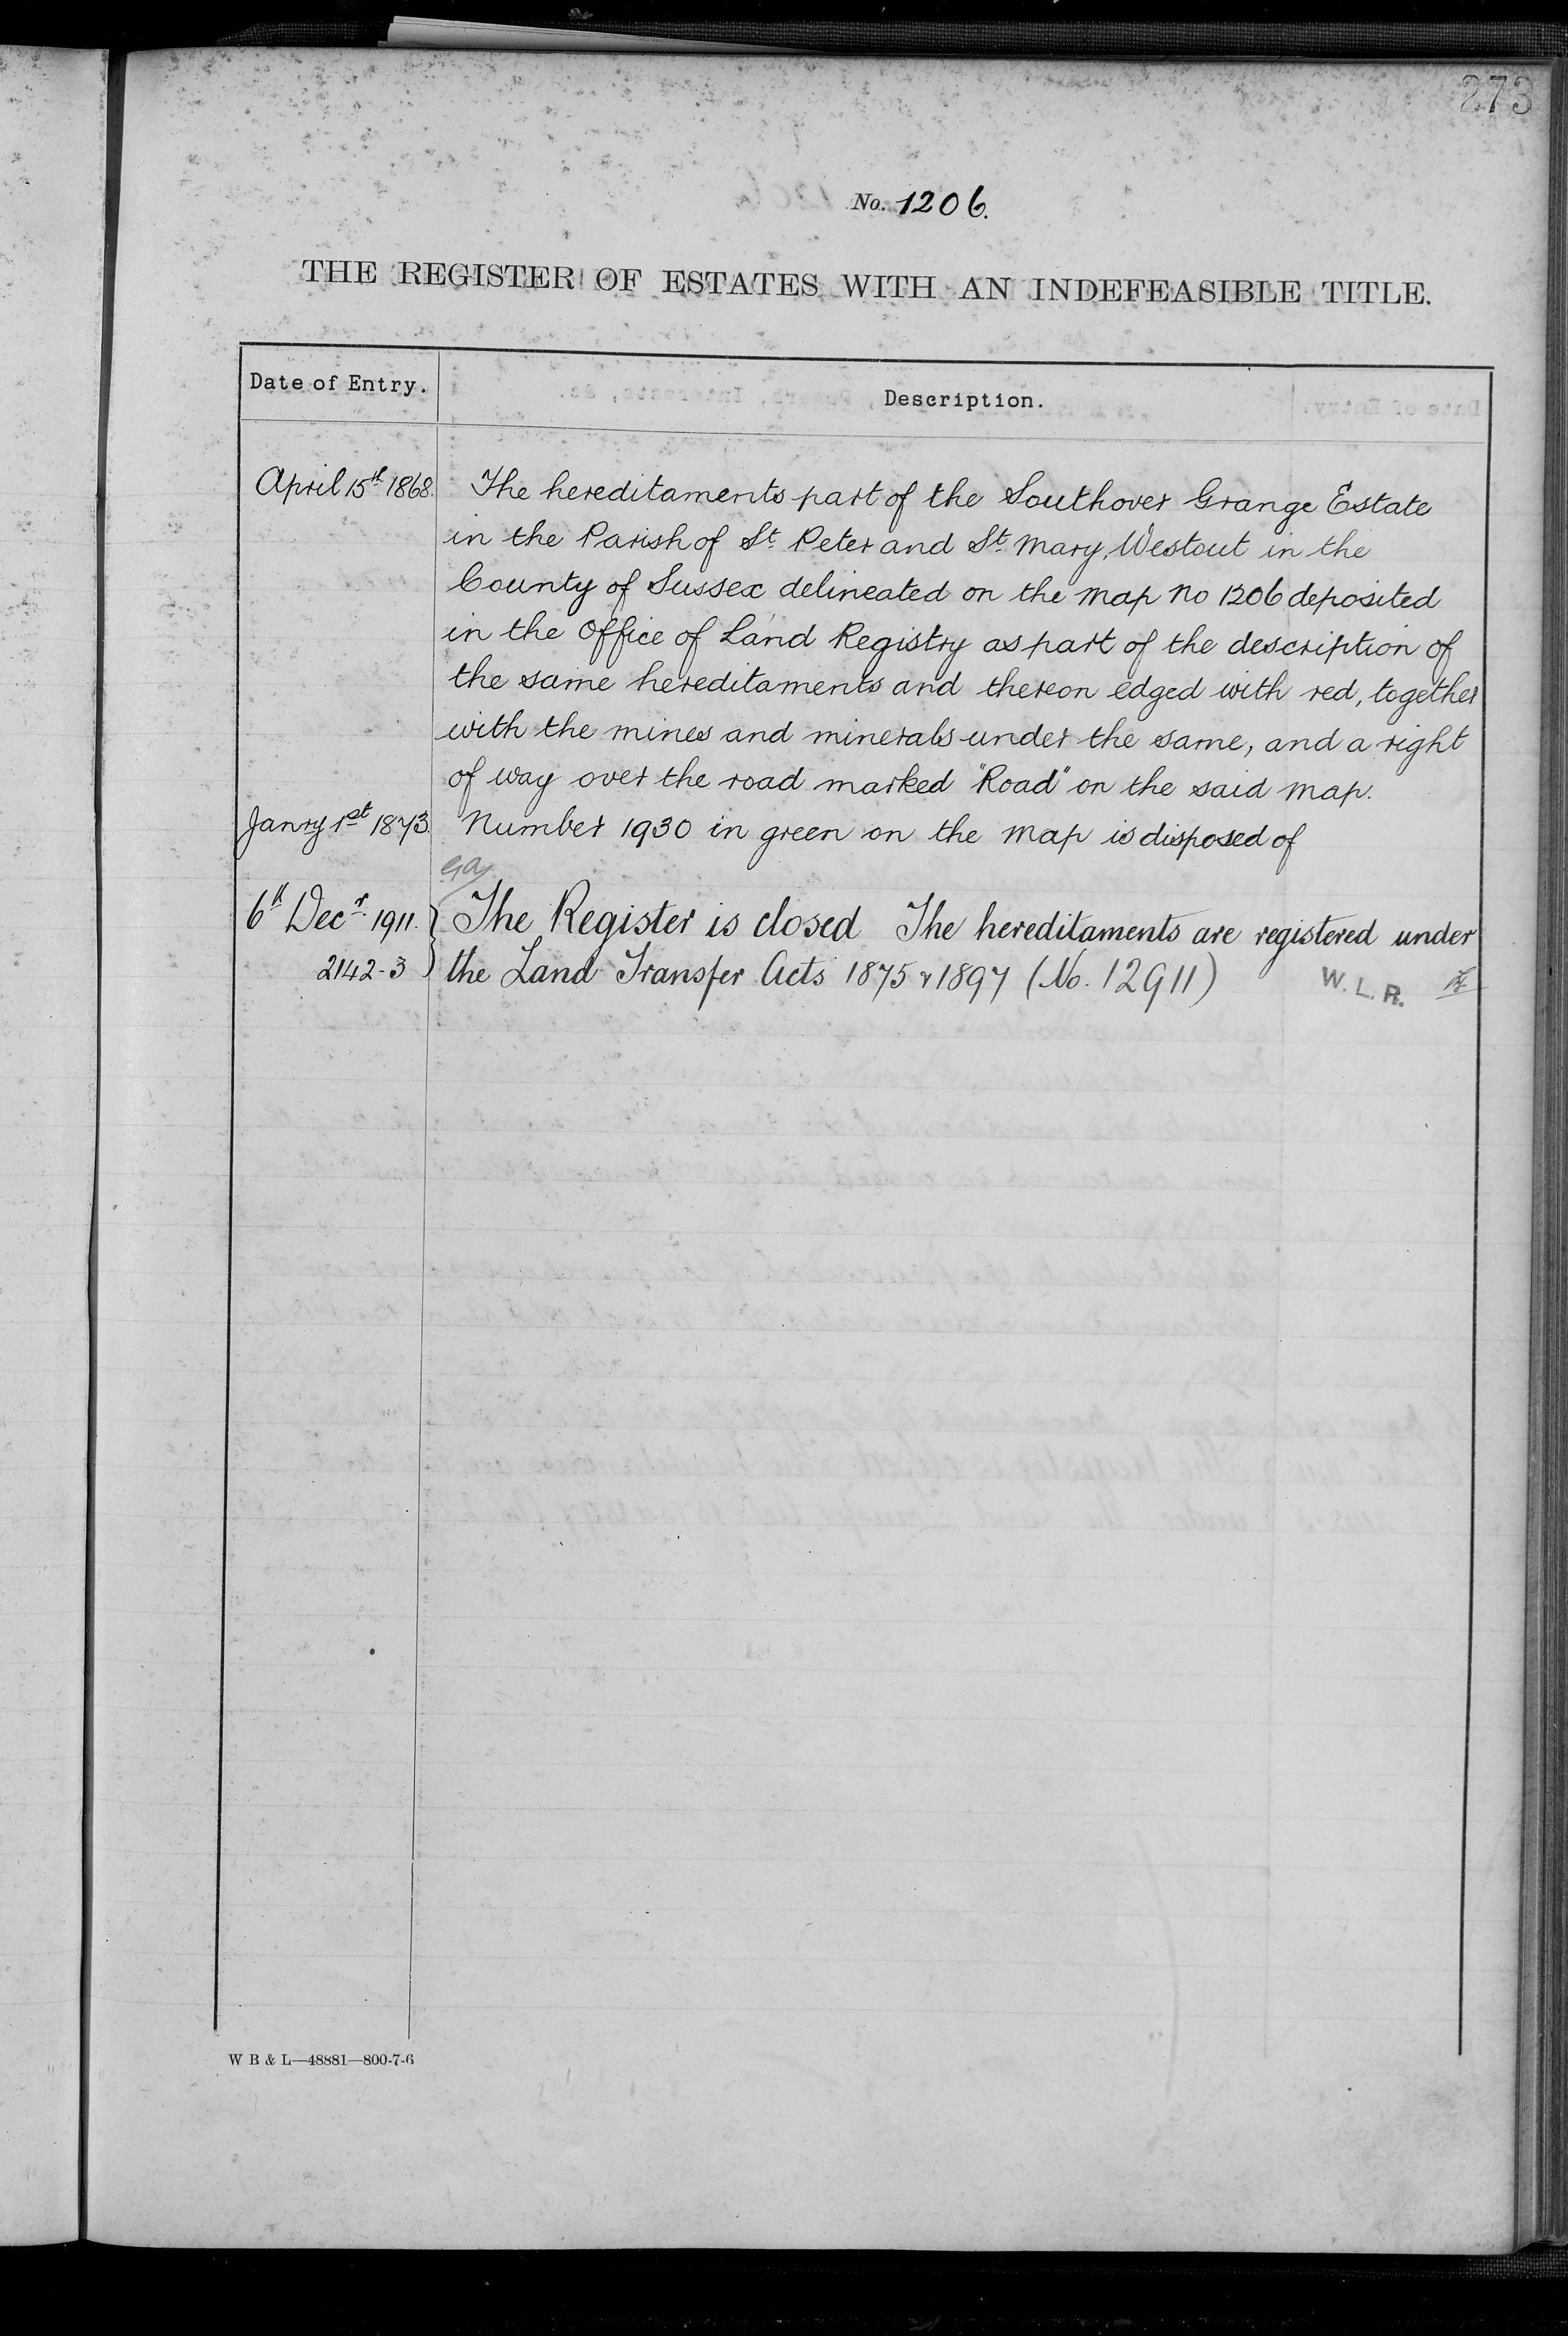 273
No. 1206.
THE REGISTER OF ESTATES WITH AN INDEFEASIBLE TITLE.
Date of Entry. Description.
April 15th 1868. The hereditaments part of the Southover Grange Estate
in the Parish of St. Peter and St. Mary, Westout in the
County of Sussex delineated on the map no 1206 deposited
in the Office of Land Registry as part of the description of
the same hereditaments and thereon edged with red, together
with the mines and minerals under the same, and a right
of way over the road marked "Road" on the said map.
Janry 1st 1873. Number 1930 in green on the map is disposed of
6th Decr. 1911. } The Register is closed The hereditaments are registered under
2142-3 } the Land Transfer Acts 1875 & 1897 (No. 12911)
W. L. R.
W B & L—48881—800-7-6